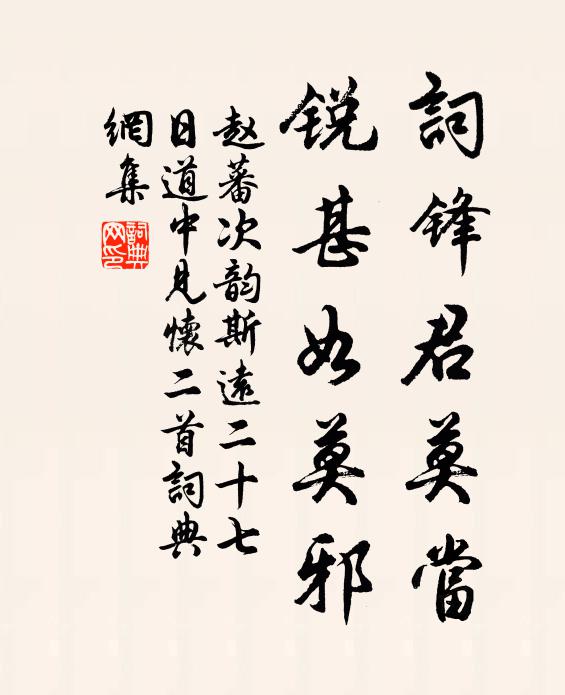 詞鋒君莫當
銳甚如莫邪
赵蕃次韵斯遠二十七
日道中見懷二首詞典
網集
詞典网印